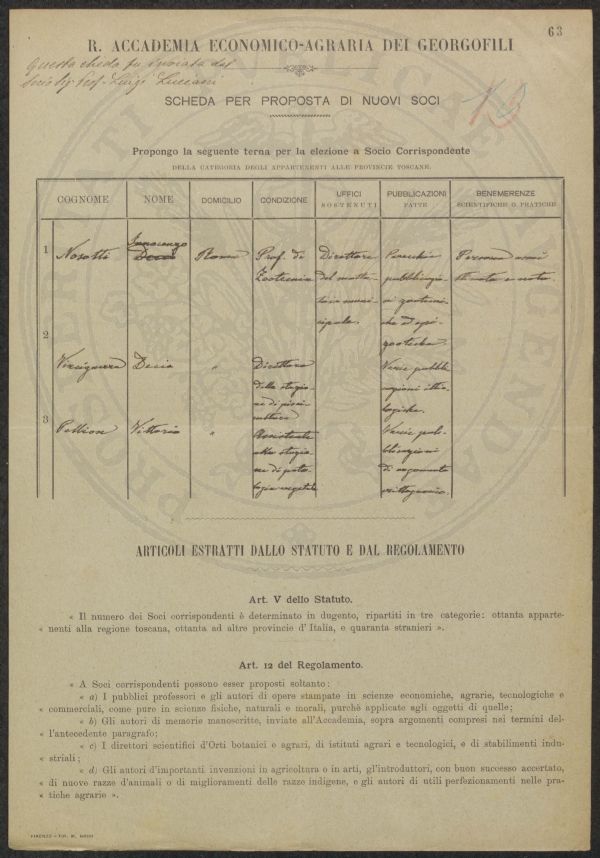 63
R. ACCADEMIA ECONOMICO-AGRARIA DEI GEORGOFILI
Questa scheda fu inviata dal
Socio Sig. Prof. Luigi Luciani
SCHEDA PER PROPOSTA DI NUOVI SOCI
13
Propongo la seguente terna per la elezione a Socio Corrispondente
DELLA CATEGORIA DEGLI APPARTENENTI ALLE PROVINCIE TOSCANE.
COGNOME NOME DOMICILIO CONDIZIONE UFFICI SOSTENUTI PUBBLICAZIONI FATTE BENEMERENZE SCIENTIFICHE O PRATICHE
1
Innocenzo
Nosotti Decio Roma Prof. di Direttore Parecchie Persona assai
Zootecnia del matta- pubblicazio-
toio muni- ni zootecni-
cipale. che ed epi-
2
zootiche.
Vinciguerra Decio " Direttore Varie pubbli
della stazio- cazioni ittio-
ne di pisci- logiche.
3
coltura
Pellion Vittorio " Assistente Varie pub-
alla stazio- blicazioni
ne di pato- di argomento
logia vegetale crittogamico.
ARTICOLI ESTRATTI DALLO STATUTO E DAL REGOLAMENTO
Art. V dello Statuto.
« Il numero dei Soci corrispondenti è determinato in dugento, ripartiti in tre categorie: ottanta apparte-
« nenti alla regione toscana, ottanta ad altre provincie d'Italia, e quaranta stranieri ».
Art. 12 del Regolamento.
« A Soci corrispondenti possono esser proposti soltanto:
« a) I pubblici professori e gli autori di opere stampate in scienze economiche, agrarie, tecnologiche e
« commerciali, come pure in scienze fisiche, naturali e morali, purchè applicate agli oggetti di quelle;
« b) Gli autori di memorie manoscritte, inviate all'Accademia, sopra argomenti compresi nei termini del-
« l'antecedente paragrafo;
« c) I direttori scientifici d'Orti botanici e agrari, di istituti agrari e tecnologici, e di stabilimenti indu-
« striali;
« d) Gli autori d'importanti invenzioni in agricoltura o in arti, gl'introduttori, con buon successo accertato,
« di nuove razze d'animali o di miglioramenti delle razze indigene, e gli autori di utili perfezionamenti nelle pra-
« tiche agrarie ».